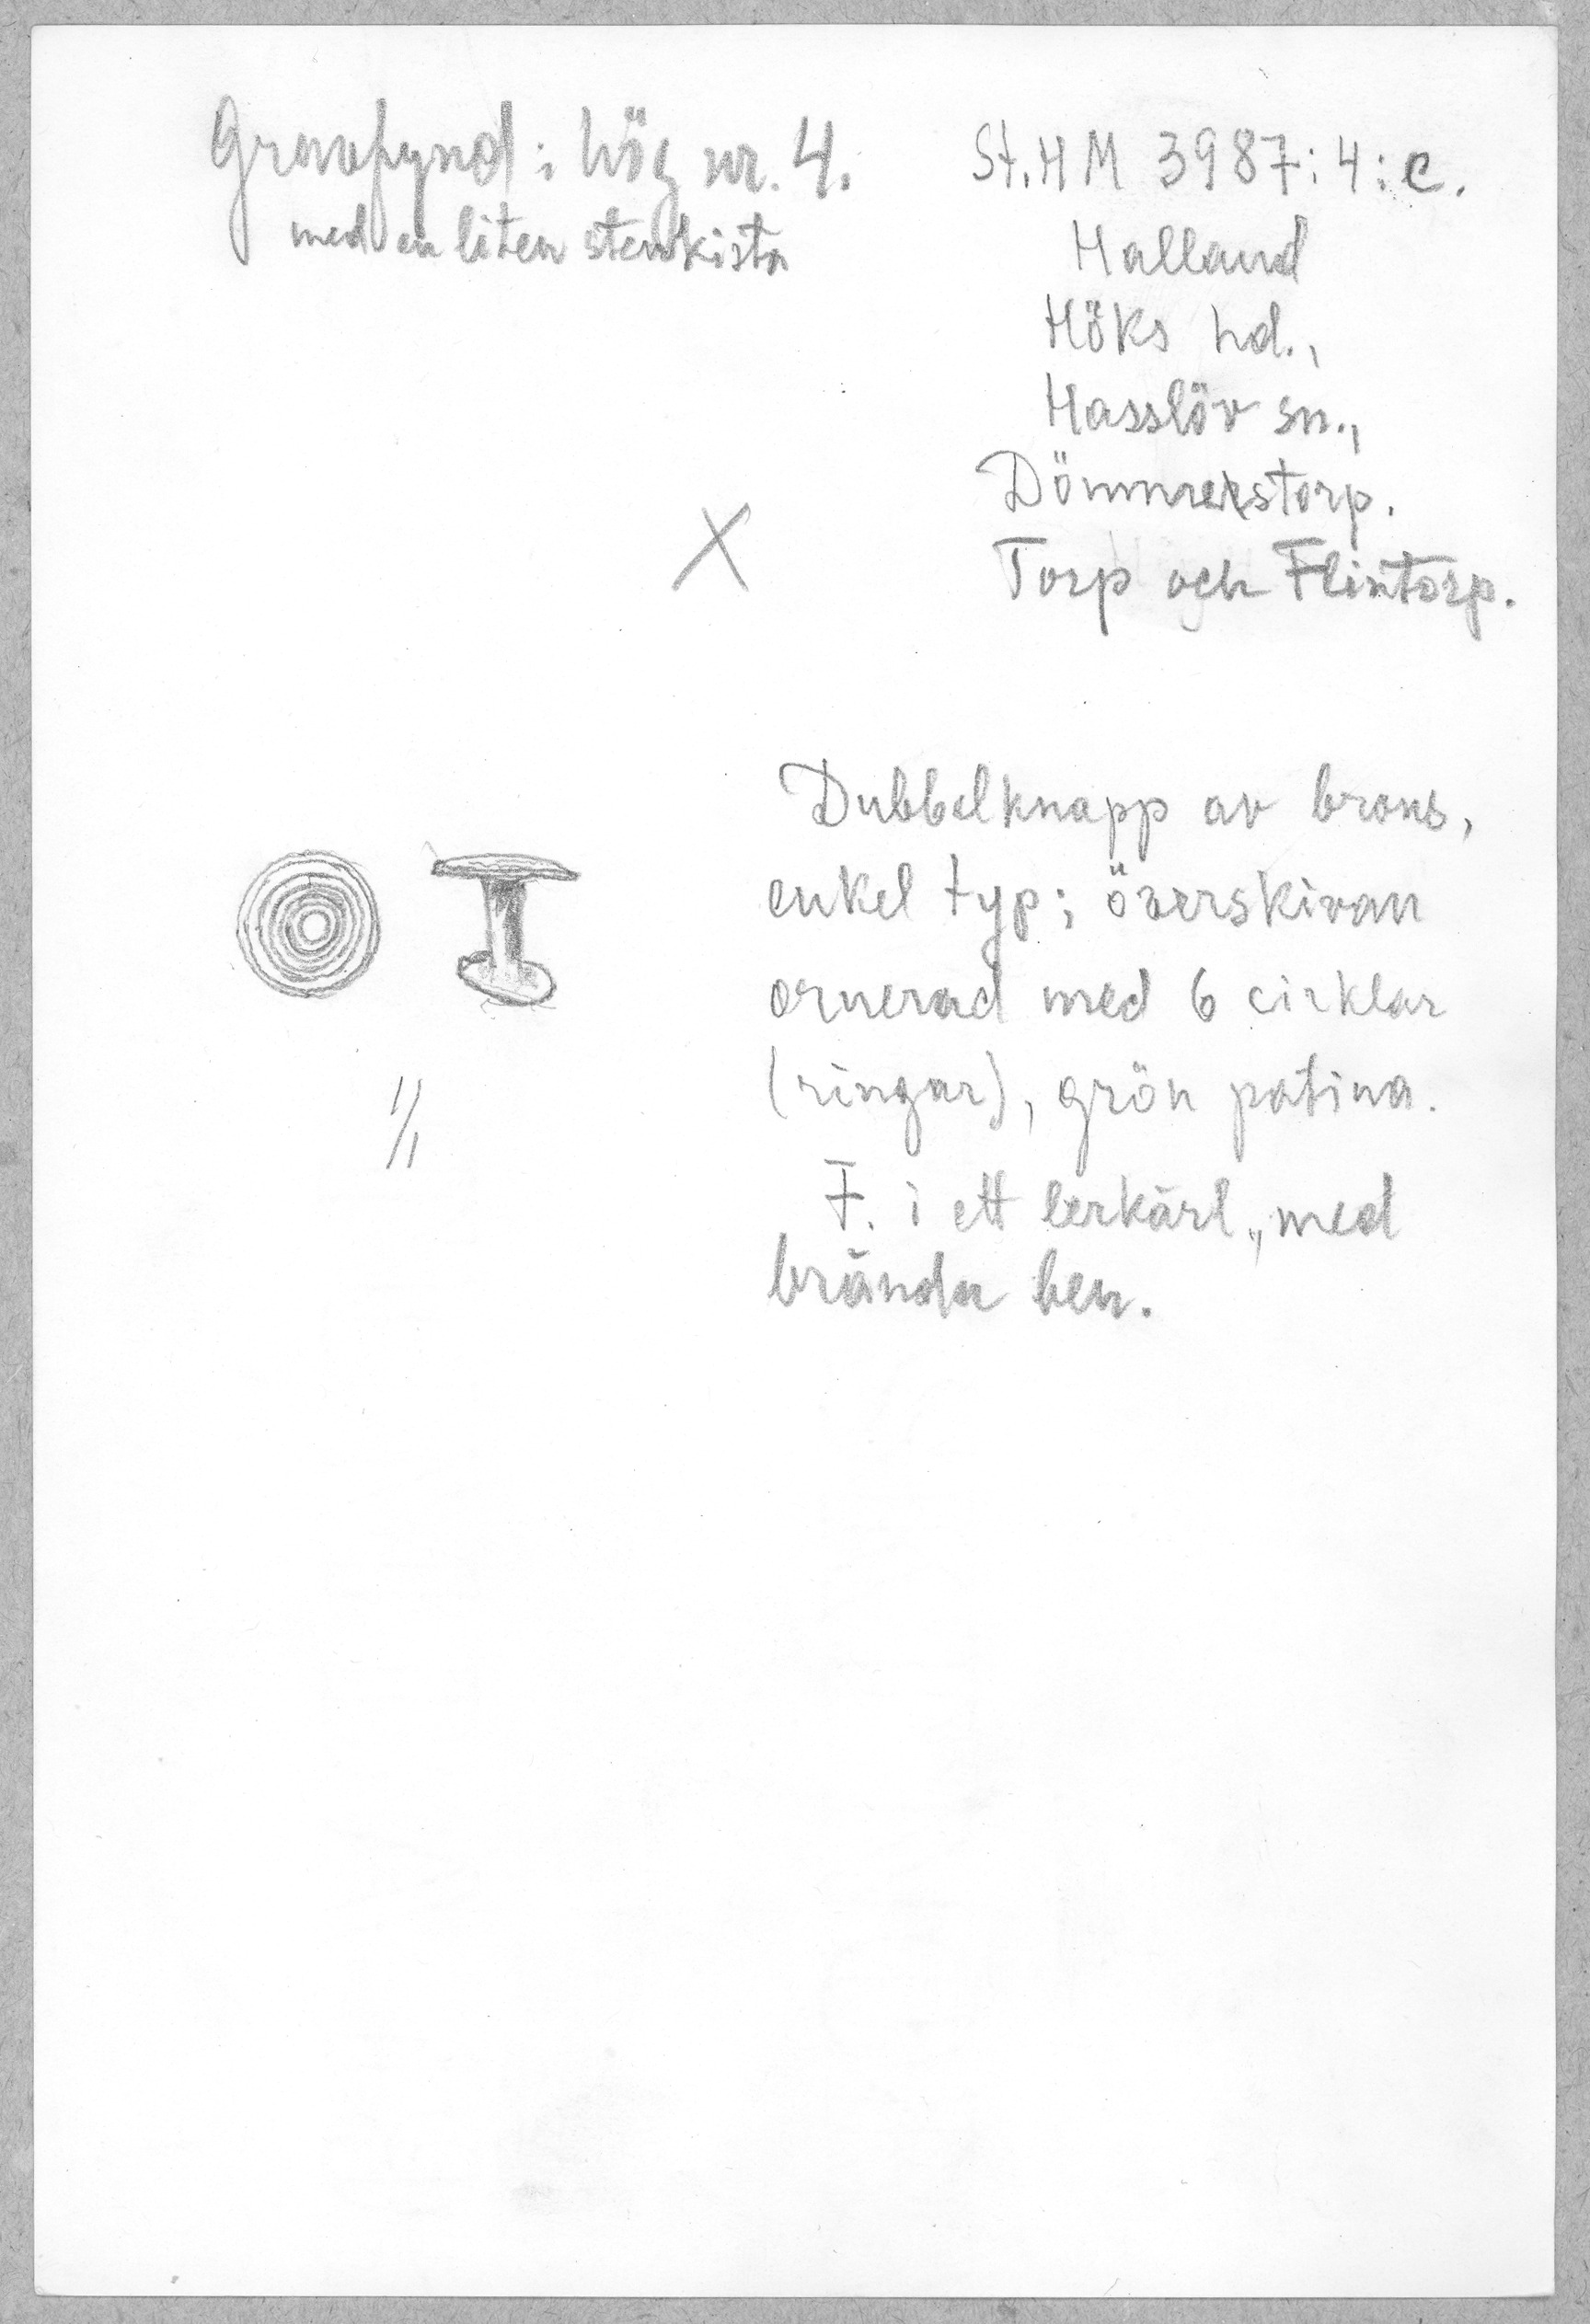 Gravfynd i hög nr. 4.
med en liten stenkista
St.HM 3987:4:c.
Halland
Höks hd.,
Hasslöv sn.,
Dömmestorp.
Torp och Flintorp.
X
Dubbelknapp av brons,
enkel typ; överskivan
ornerad med 6 cirklar
(ringar), grön patina.
F. i ett lerkärl, med
brända ben.
1/1